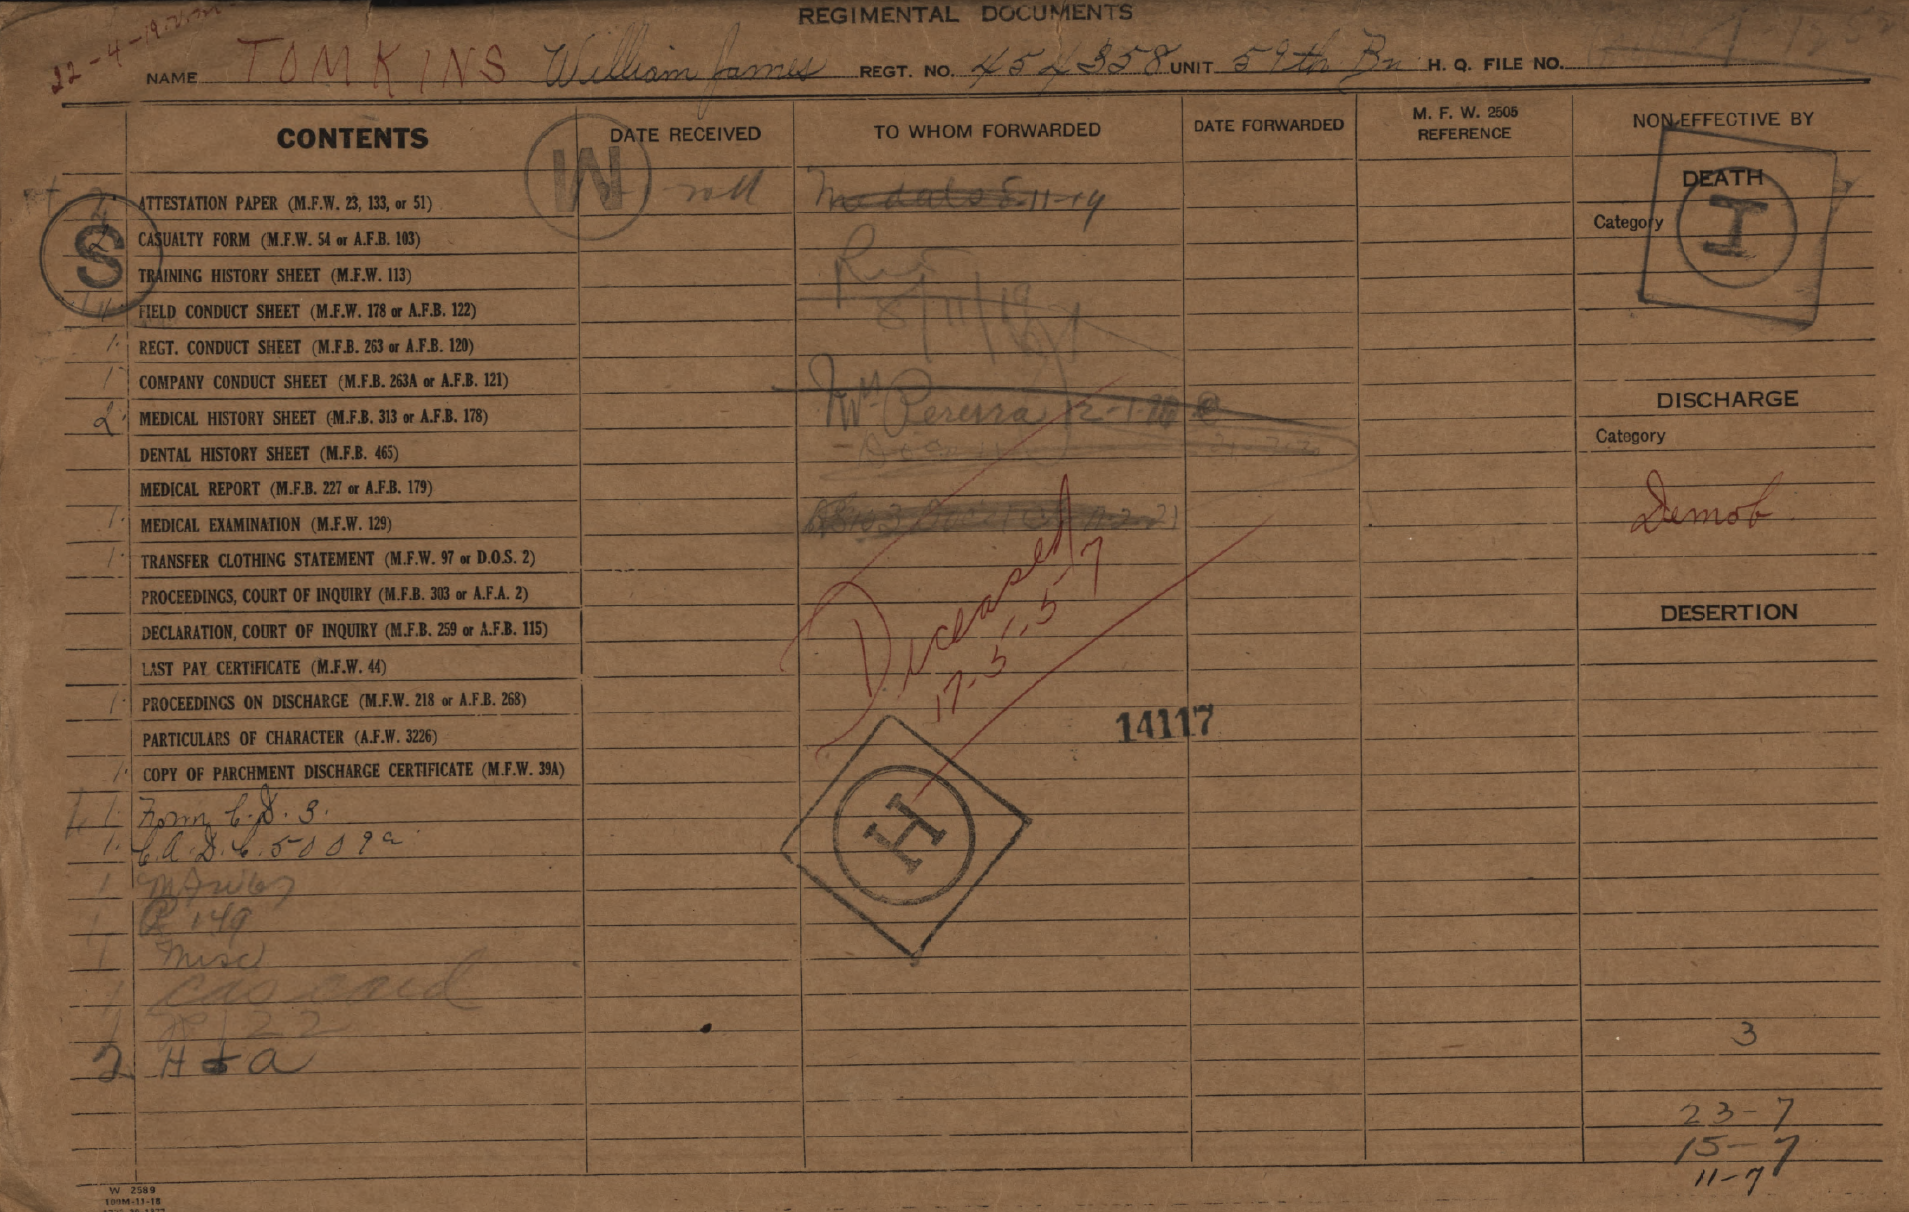 REGIMENTAL DOCUMENTS
22-4-19
NAME TOMKINS William James REGT. NO. 454358 UNIT 59th Bn H. Q. FILE NO.
CONTENTS DATE RECEIVED TO WHOM FORWARDED DATE FORWARDED M. F. W. 2505 REFERENCE NON-EFFECTIVE BY
W
roll Medals 5-11-19
DEATH
I
Category
S
2 ATTESTATION PAPER (M.F.W. 23, 133, or 51)
2 CASUALTY FORM (M.F.W. 54 or A.F.B. 103)
TRAINING HISTORY SHEET (M.F.W. 113)
8/11/19
FIELD CONDUCT SHEET (M.F.W. 178 or A.F.B. 122)
1 REGT. CONDUCT SHEET (M.F.B. 263 or A.F.B. 120)
1 COMPANY CONDUCT SHEET (M.F.B. 263A or A.F.B. 121)
Pereira 12-1-20
DISCHARGE
2 MEDICAL HISTORY SHEET (M.F.B. 313 or A.F.B. 178)
Category
DENTAL HISTORY SHEET (M.F.B. 465)
MEDICAL REPORT (M.F.B. 227 or A.F.B. 179)
Demob
1 MEDICAL EXAMINATION (M.F.W. 129)
1 TRANSFER CLOTHING STATEMENT (M.F.W. 97 or D.O.S. 2)
PROCEEDINGS, COURT OF INQUIRY (M.F.B. 303 or A.F.A. 2)
DECLARATION, COURT OF INQUIRY (M.F.B. 259 or A.F.B. 115)
DESERTION
Deceased
17-5-57
LAST PAY CERTIFICATE (M.F.W. 44)
1 PROCEEDINGS ON DISCHARGE (M.F.W. 218 or A.F.B. 268)
14117
PARTICULARS OF CHARACTER (A.F.W. 3226)
1 COPY OF PARCHMENT DISCHARGE CERTIFICATE (M.F.W. 39A)
H
1 Form C.D. 3.
1 C.A.D.C. 5009a
1
1 R 149
1 Misc
1 Cas card
1 122
2 H & a
3
23-7
15-7
11-7
W 2589
100M-11-18